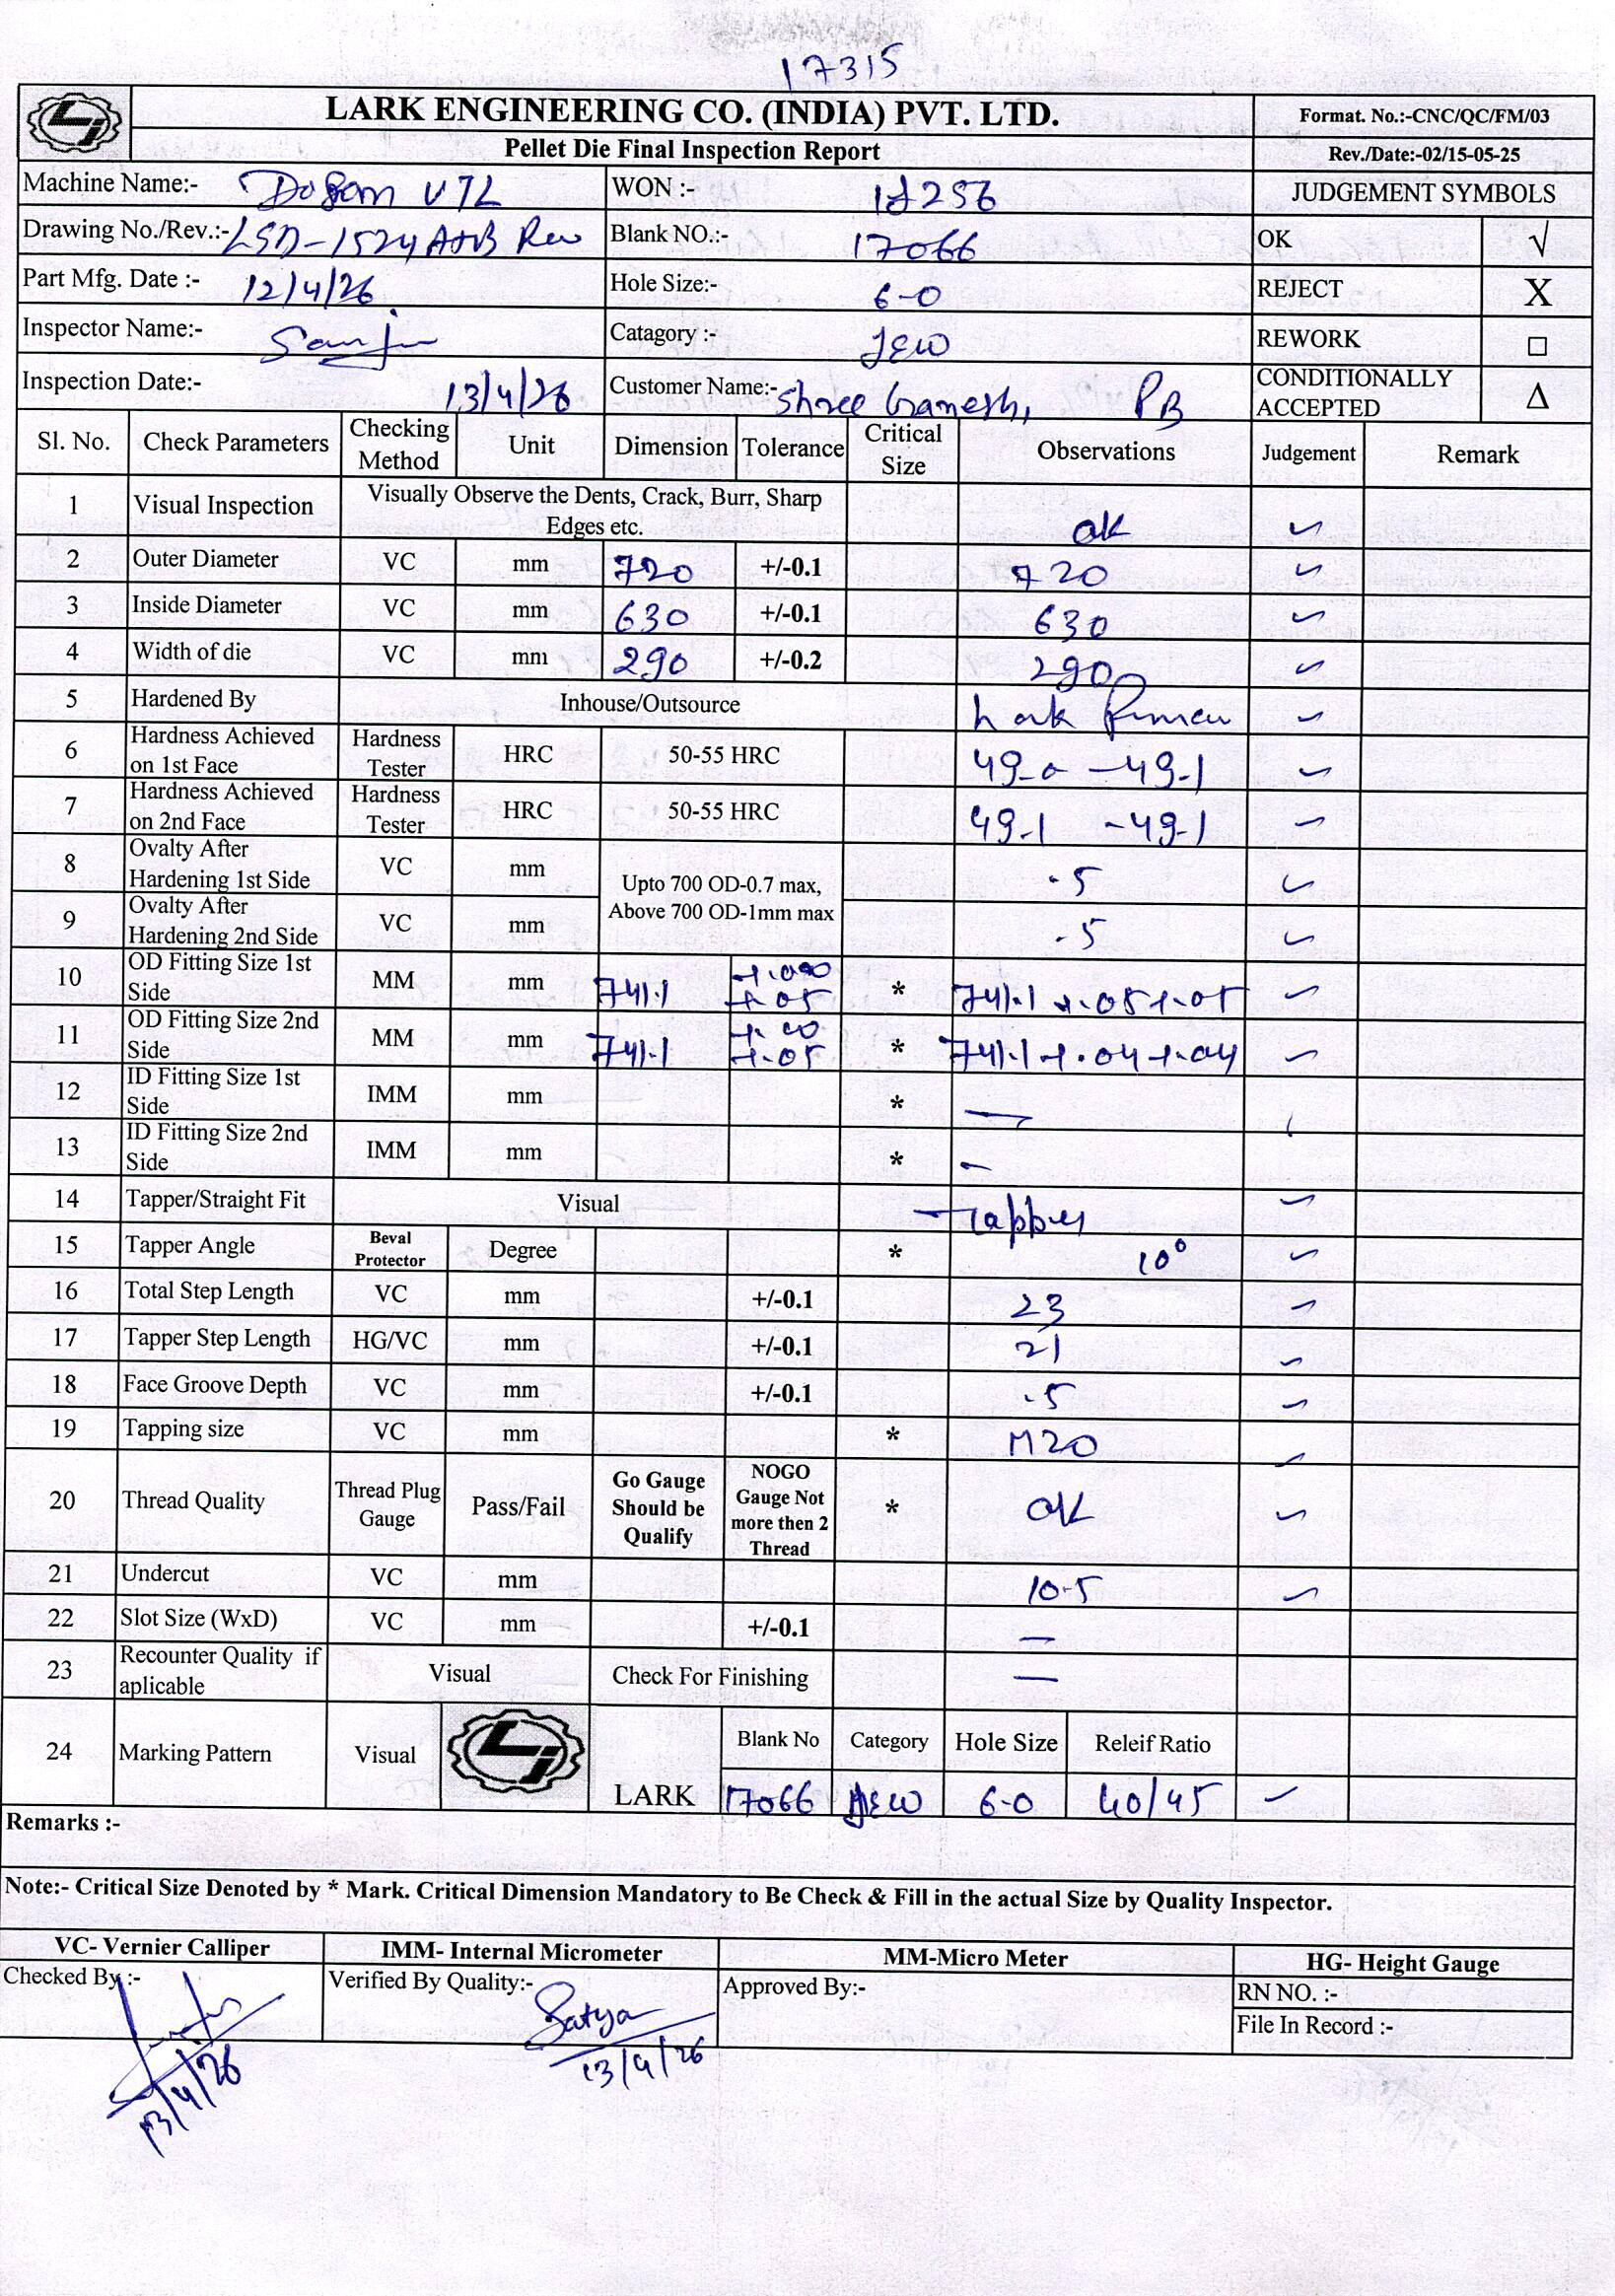 17315
LARK ENGINEERING CO. (INDIA) PVT. LTD.
Format. No.:-CNC/QC/FM/03
Pellet Die Final Inspection Report
Rev./Date:-02/15-05-25
Machine Name:- VTL
WON :-
JUDGEMENT SYMBOLS
Drawing No./Rev.:- LSD-1524 A+B Rev
Blank NO.:- 17066
OK √
Part Mfg. Date :- 12/4/26
Hole Size:- 6-0
REJECT X
Inspector Name:- Sanju
Catagory :-
REWORK □
Inspection Date:- 13/4/26
Customer Name:- Shree Ganesh, PB
CONDITIONALLY ACCEPTED Δ
Sl. No. Check Parameters Checking Method Unit Dimension Tolerance Critical Size Observations Judgement Remark
1 Visual Inspection Visually Observe the Dents, Crack, Burr, Sharp Edges etc. ok ✓
2 Outer Diameter VC mm 720 +/-0.1 720 ✓
3 Inside Diameter VC mm 630 +/-0.1 630 ✓
4 Width of die VC mm 290 +/-0.2 290 ✓
5 Hardened By Inhouse/Outsource Lark ✓
6 Hardness Achieved on 1st Face Hardness Tester HRC 50-55 HRC 49-0 - 49-1 ✓
7 Hardness Achieved on 2nd Face Hardness Tester HRC 50-55 HRC 49-1 - 49-1 ✓
8 Ovalty After Hardening 1st Side VC mm Upto 700 OD-0.7 max, Above 700 OD-1mm max .5 ✓
9 Ovalty After Hardening 2nd Side VC mm .5 ✓
10 OD Fitting Size 1st Side MM mm 741.1 +.05 * 741.1 +.05 +.05 ✓
11 OD Fitting Size 2nd Side MM mm 741.1 +.05 * 741.1 +.04 +.04 ✓
12 ID Fitting Size 1st Side IMM mm * —
13 ID Fitting Size 2nd Side IMM mm * —
14 Tapper/Straight Fit Visual Tapper ✓
15 Tapper Angle Beval Protector Degree * 10° ✓
16 Total Step Length VC mm +/-0.1 23 ✓
17 Tapper Step Length HG/VC mm +/-0.1 21 ✓
18 Face Groove Depth VC mm +/-0.1 .5 ✓
19 Tapping size VC mm * M20 ✓
20 Thread Quality Thread Plug Gauge Pass/Fail Go Gauge Should be Qualify NOGO Gauge Not more then 2 Thread * OK ✓
21 Undercut VC mm 10.5 ✓
22 Slot Size (WxD) VC mm +/-0.1 —
23 Recounter Quality if aplicable Visual Check For Finishing —
24 Marking Pattern Visual LARK Blank No Category Hole Size Releif Ratio
17066 6-0 40/45 ✓
Remarks :-
Note:- Critical Size Denoted by * Mark. Critical Dimension Mandatory to Be Check & Fill in the actual Size by Quality Inspector.
VC- Vernier Calliper IMM- Internal Micrometer MM-Micro Meter HG- Height Gauge
Checked By :- Verified By Quality:- Satya Approved By:- RN NO. :-
File In Record :-
13/4/26 13/4/26